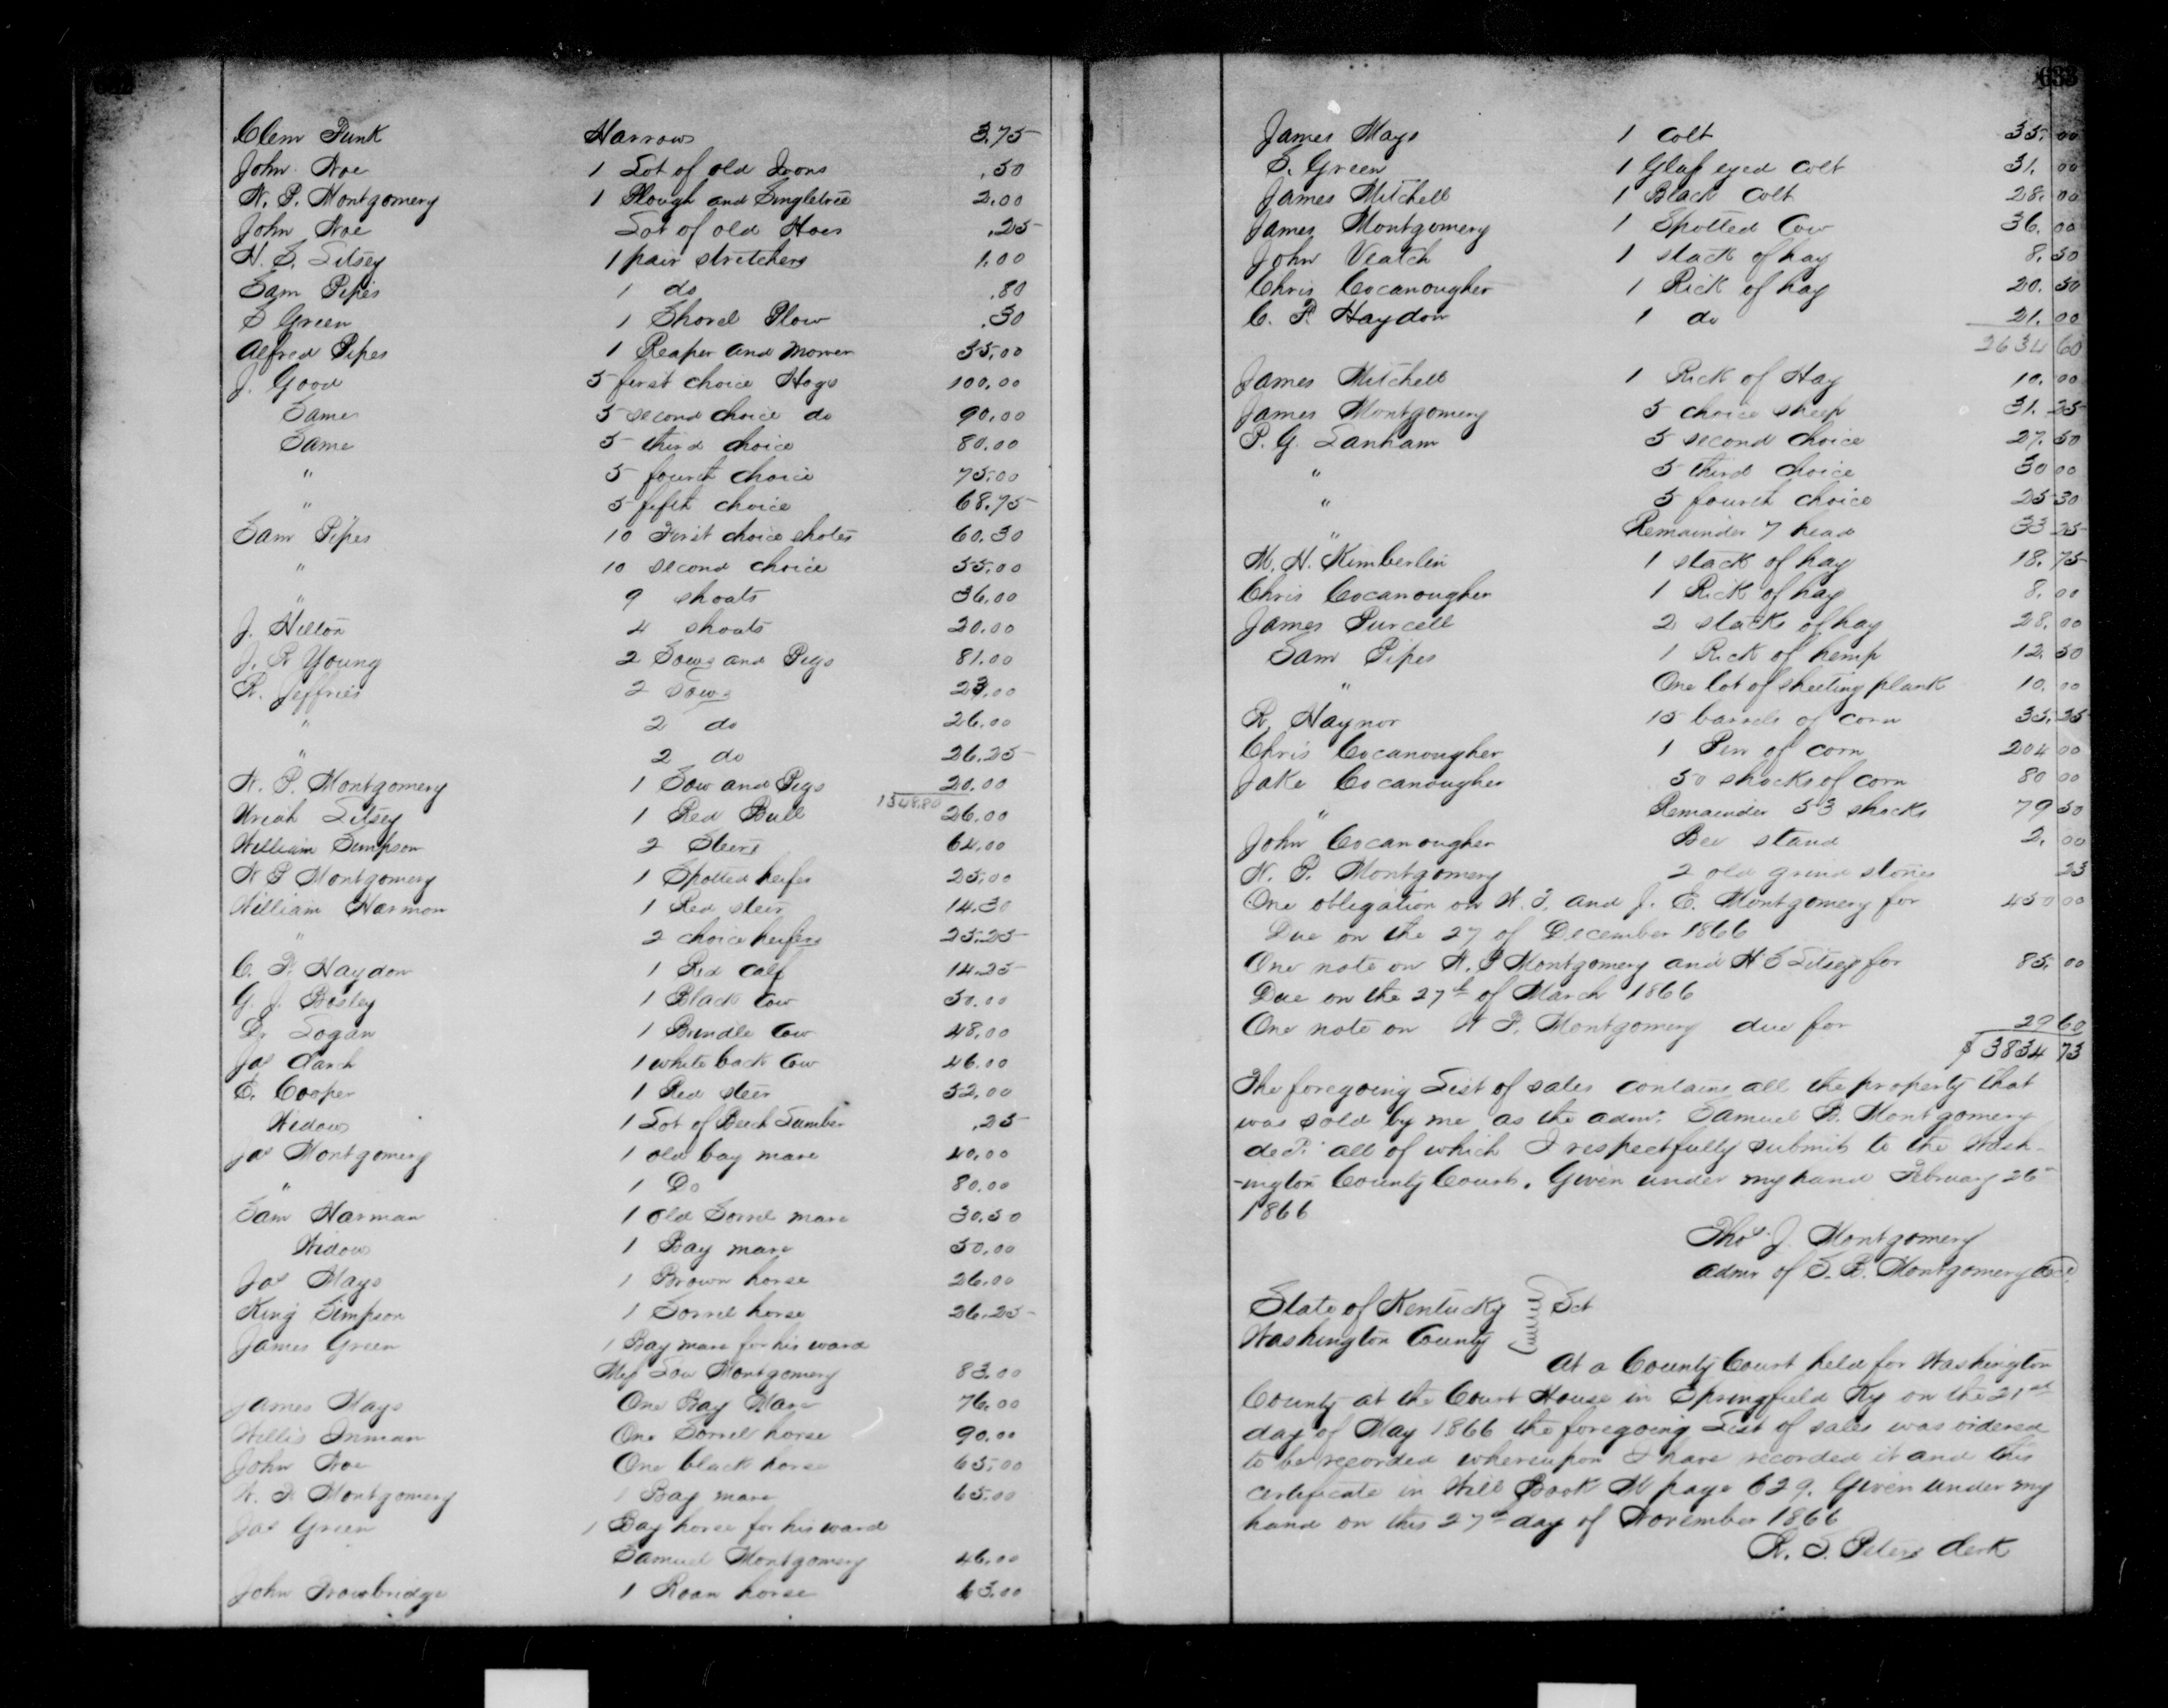 Clem Funk Harrows 3.75
John Noe 1 Lot of old Irons .50
W. P. Montgomery 1 Plough and Singletree 2.00
John Noe Lot of old Hoes .25
H. S. Litsey 1 pair stretchers 1.00
Sam Pipes 1 do .80
S Green 1 Shovel Plow .30
Alfred Pipes 1 Reaper and Mower 55.00
J. Good 5 first choice Hogs 100.00
Same 5 second choice do 90.00
Same 5 third choice 80.00
" 5 fourth choice 75.00
" 5 fifth choice 68.75
Sam Pipes 10 First choice shotes 60.30
" 10 second choice 55.00
" 9 shoats 36.00
J. Hilton 4 shoats 20.00
J. R Young 2 Sows and Pigs 81.00
R. Jeffries 2 Sows 23.00
" 2 do 26.00
" 2 do 26.25
W. P. Montgomery 1 Sow and Pigs 20.00
1548.80
Uriah Litsey 1 Red Bull 26.00
William Simpson 2 Steers 64.00
W P Montgomery 1 Spotted heifer 25.00
William Harmon 1 Red steer 14.30
" 2 choice heifers 25.25
C. P. Haydon 1 Red calf 14.25
G. J. Bosley 1 Black Cow 50.00
Dr Logan 1 Brindle Cow 48.00
Jas Clark 1 white back Cow 46.00
E. Cooper 1 Red steer 52.00
Widow 1 Lot of Beech Lumber .25
Jas Montgomery 1 old bay mare 40.00
" 1 Do 80.00
Sam Harman 1 old Sorrel mare 30.50
Widow 1 Bay mare 50.00
Jas Mays 1 Brown horse 26.00
King Simpson 1 Sorrel horse 26.25
James Green 1 Bay mare for his ward
Miss Lou Montgomery 83.00
James Mays One Bay Mare 76.00
Willis Inman One Sorrel horse 90.00
John Noe One black horse 65.00
W. P. Montgomery 1 Bay mare 65.00
Jas Green 1 Bay horse for his ward
Samuel Montgomery 46.00
John Trowbridge 1 Roan horse 63.00
633
James Mays 1 colt 35.00
S. Green 1 Glass eyed colt 31.00
James Mitchell 1 Black Colt 28.00
James Montgomery 1 Spotted Cow 36.00
John Veatch 1 stack of hay 8.50
Chris Cocanougher 1 Rick of hay 20.50
C. P. Haydon 1 do 21.00
2634 60
James Mitchell 1 Rick of Hay 10.00
James Montgomery 5 choice sheep 31.25
P. G. Lanham 5 second choice 27.50
" 5 third choice 30 00
" 5 fourth choice 25 30
" Remainder 7 head 33 25
M. H. Kimberlin 1 stack of hay 18.75
Chris Cocanougher 1 Rick of hay 8.00
James Purcell 2 stacks of hay 28.00
Sam Pipes 1 Rick of hemp 12.50
" One lot of sheeting plank 10.00
R. Haynor 15 barrels of corn 35.25
Chris Cocanougher 1 Pen of corn 204 00
Jake Cocanougher 50 shocks of corn 80 00
" Remainder 53 shocks 79 50
John Cocanougher Bee stand 2.00
W. P. Montgomery 2 old grind stones 23
One obligation on W. P. and J. E. Montgomery for 450 00
Due on the 27 of December 1866
One note on W. P Montgomery and H S Litsey for 85.00
Due on the 27th of March 1866
One note on W P. Montgomery due for 29 60
$ 3834 73
The foregoing List of sales contains all the property that
was sold by me as the admr. Samuel B. Montgomery
decd. all of which I respectfully submit to the Wash-
-ington County Court. Given under my hand February 26th
1866
Thos J. Montgomery
admr of S. B. Montgomery decd.
State of Kentucky } Sct
Washington County
At a County Court held for Washington
County at the Court House in Springfield Ky on the 21st
day of May 1866 the foregoing List of sales was ordered
to be recorded whereupon I have recorded it and this
certificate in Will Book M page 629. Given under my
hand on this 27th day of November 1866
W. S. Peters Clerk